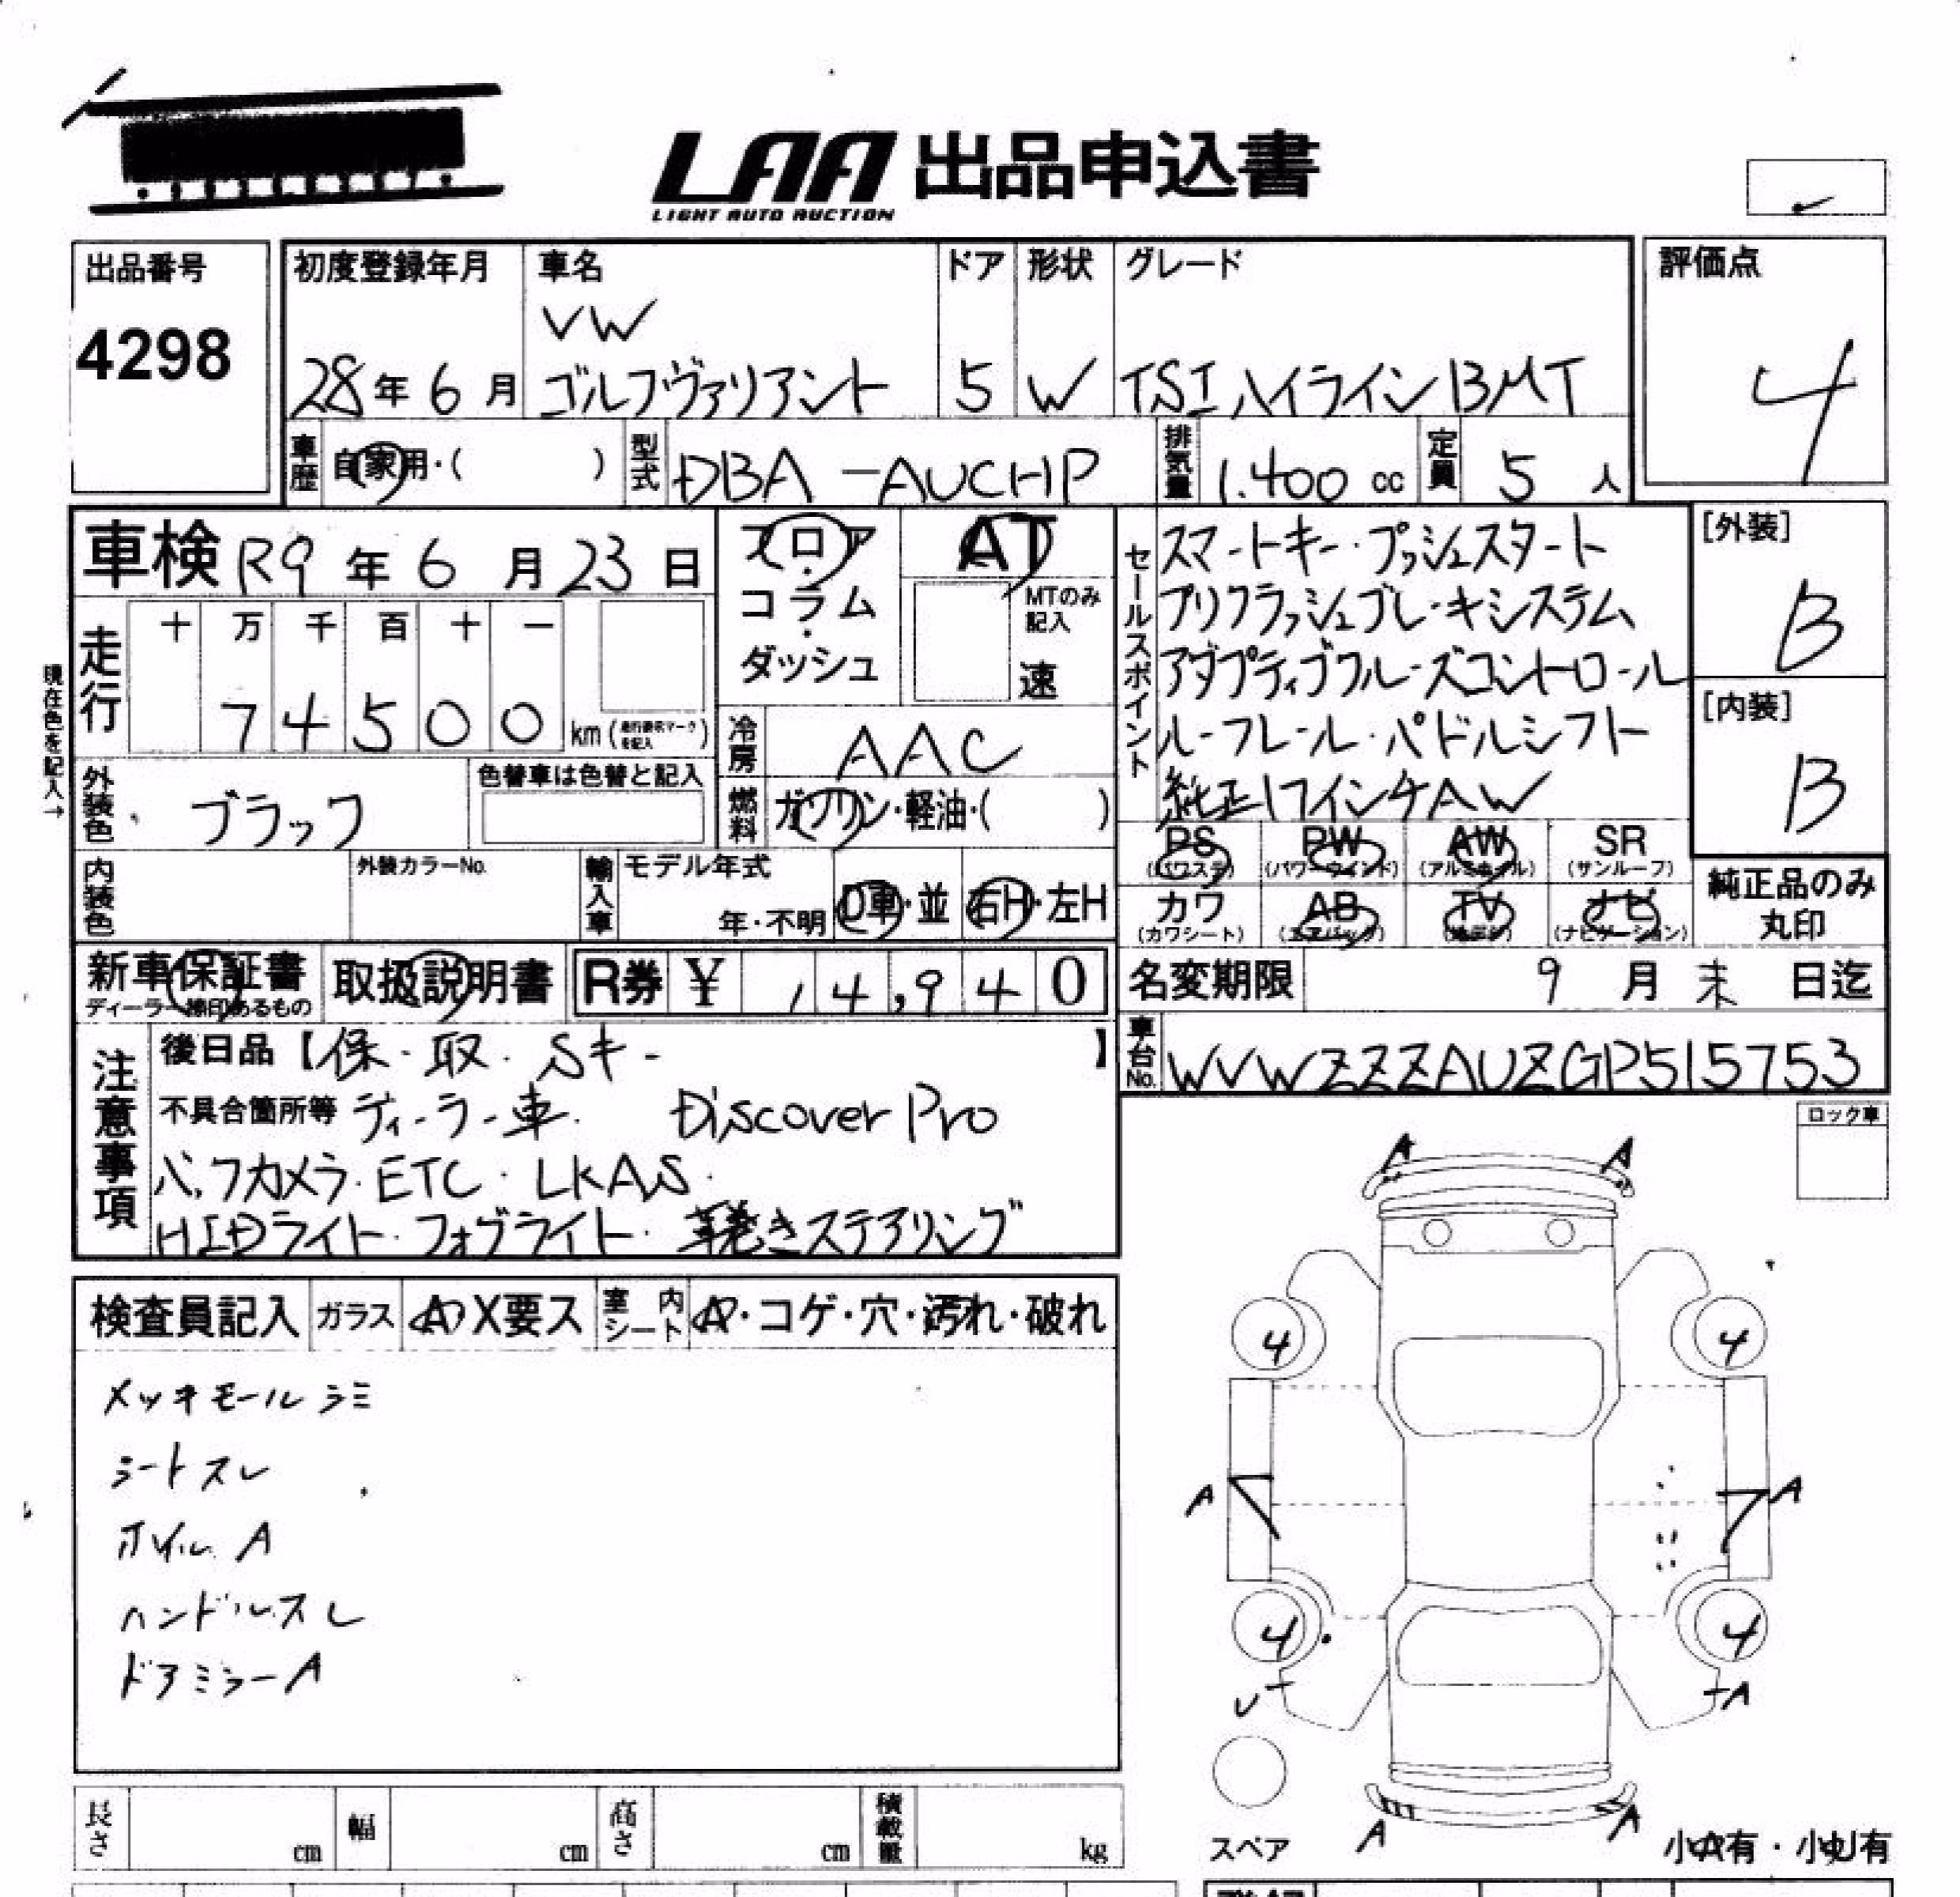 LAA 出品申込書
LIGHT AUTO AUCTION
出品番号
4298
初度登録年月
28年6月
車名
VW
ゴルフヴァリアント
ドア
5
形状
W
グレード
TSIハイラインBMT
評価点
4
車歴 自家用・( )
型式 DBA-AUCHP
排気量 1.400cc
定員 5人
車検 R9年6月23日
フロア・コラム・ダッシュ
AT
MTのみ記入
速
走行
十 万 千 百 十 一
7 4 5 0 0 km(走行表示マークを記入)
現在色を記入→
冷房 AAC
外装色 ブラック
色替車は色替と記入
燃料 ガソリン・軽油・( )
内装色
外装カラーNo.
輸入車
モデル年式
年・不明
D車・並
右H・左H
セールスポイント
スマートキー・プッシュスタート
プリクラッシュブレーキシステム
アダプティブクルーズコントロール
ルーフレール・パドルシフト
純正17インチAW
[外装]
B
[内装]
B
PS (パワステ)
PW (パワーウインド)
AW (アルミホイル)
SR (サンルーフ)
カワ (カワシート)
AB (エアバッグ)
TV
ナビ (ナビゲーション)
純正品のみ
丸印
新車保証書
ディーラー捺印あるもの
取扱説明書
R券 ¥ 14,940
名変期限 9月末日迄
車台No. WVWZZZAUZGP515753
注意事項
後日品【保・取・Sキー】
不具合箇所等 ディーラー車. Discover Pro
バックカメラ・ETC・LKAS・
HIDライト・フォグライト・革巻きステアリング
ロック車
検査員記入
ガラス A X要ス
室内シート A・コゲ・穴・汚れ・破れ
メッキモールシミ
シートスレ
ホイルA
ハンドルスレ
ドアミラーA
A A
4 4
A A
4 4
A
A A
スペア
小A有・小U有
長さ cm
幅 cm
高さ cm
積載量 kg